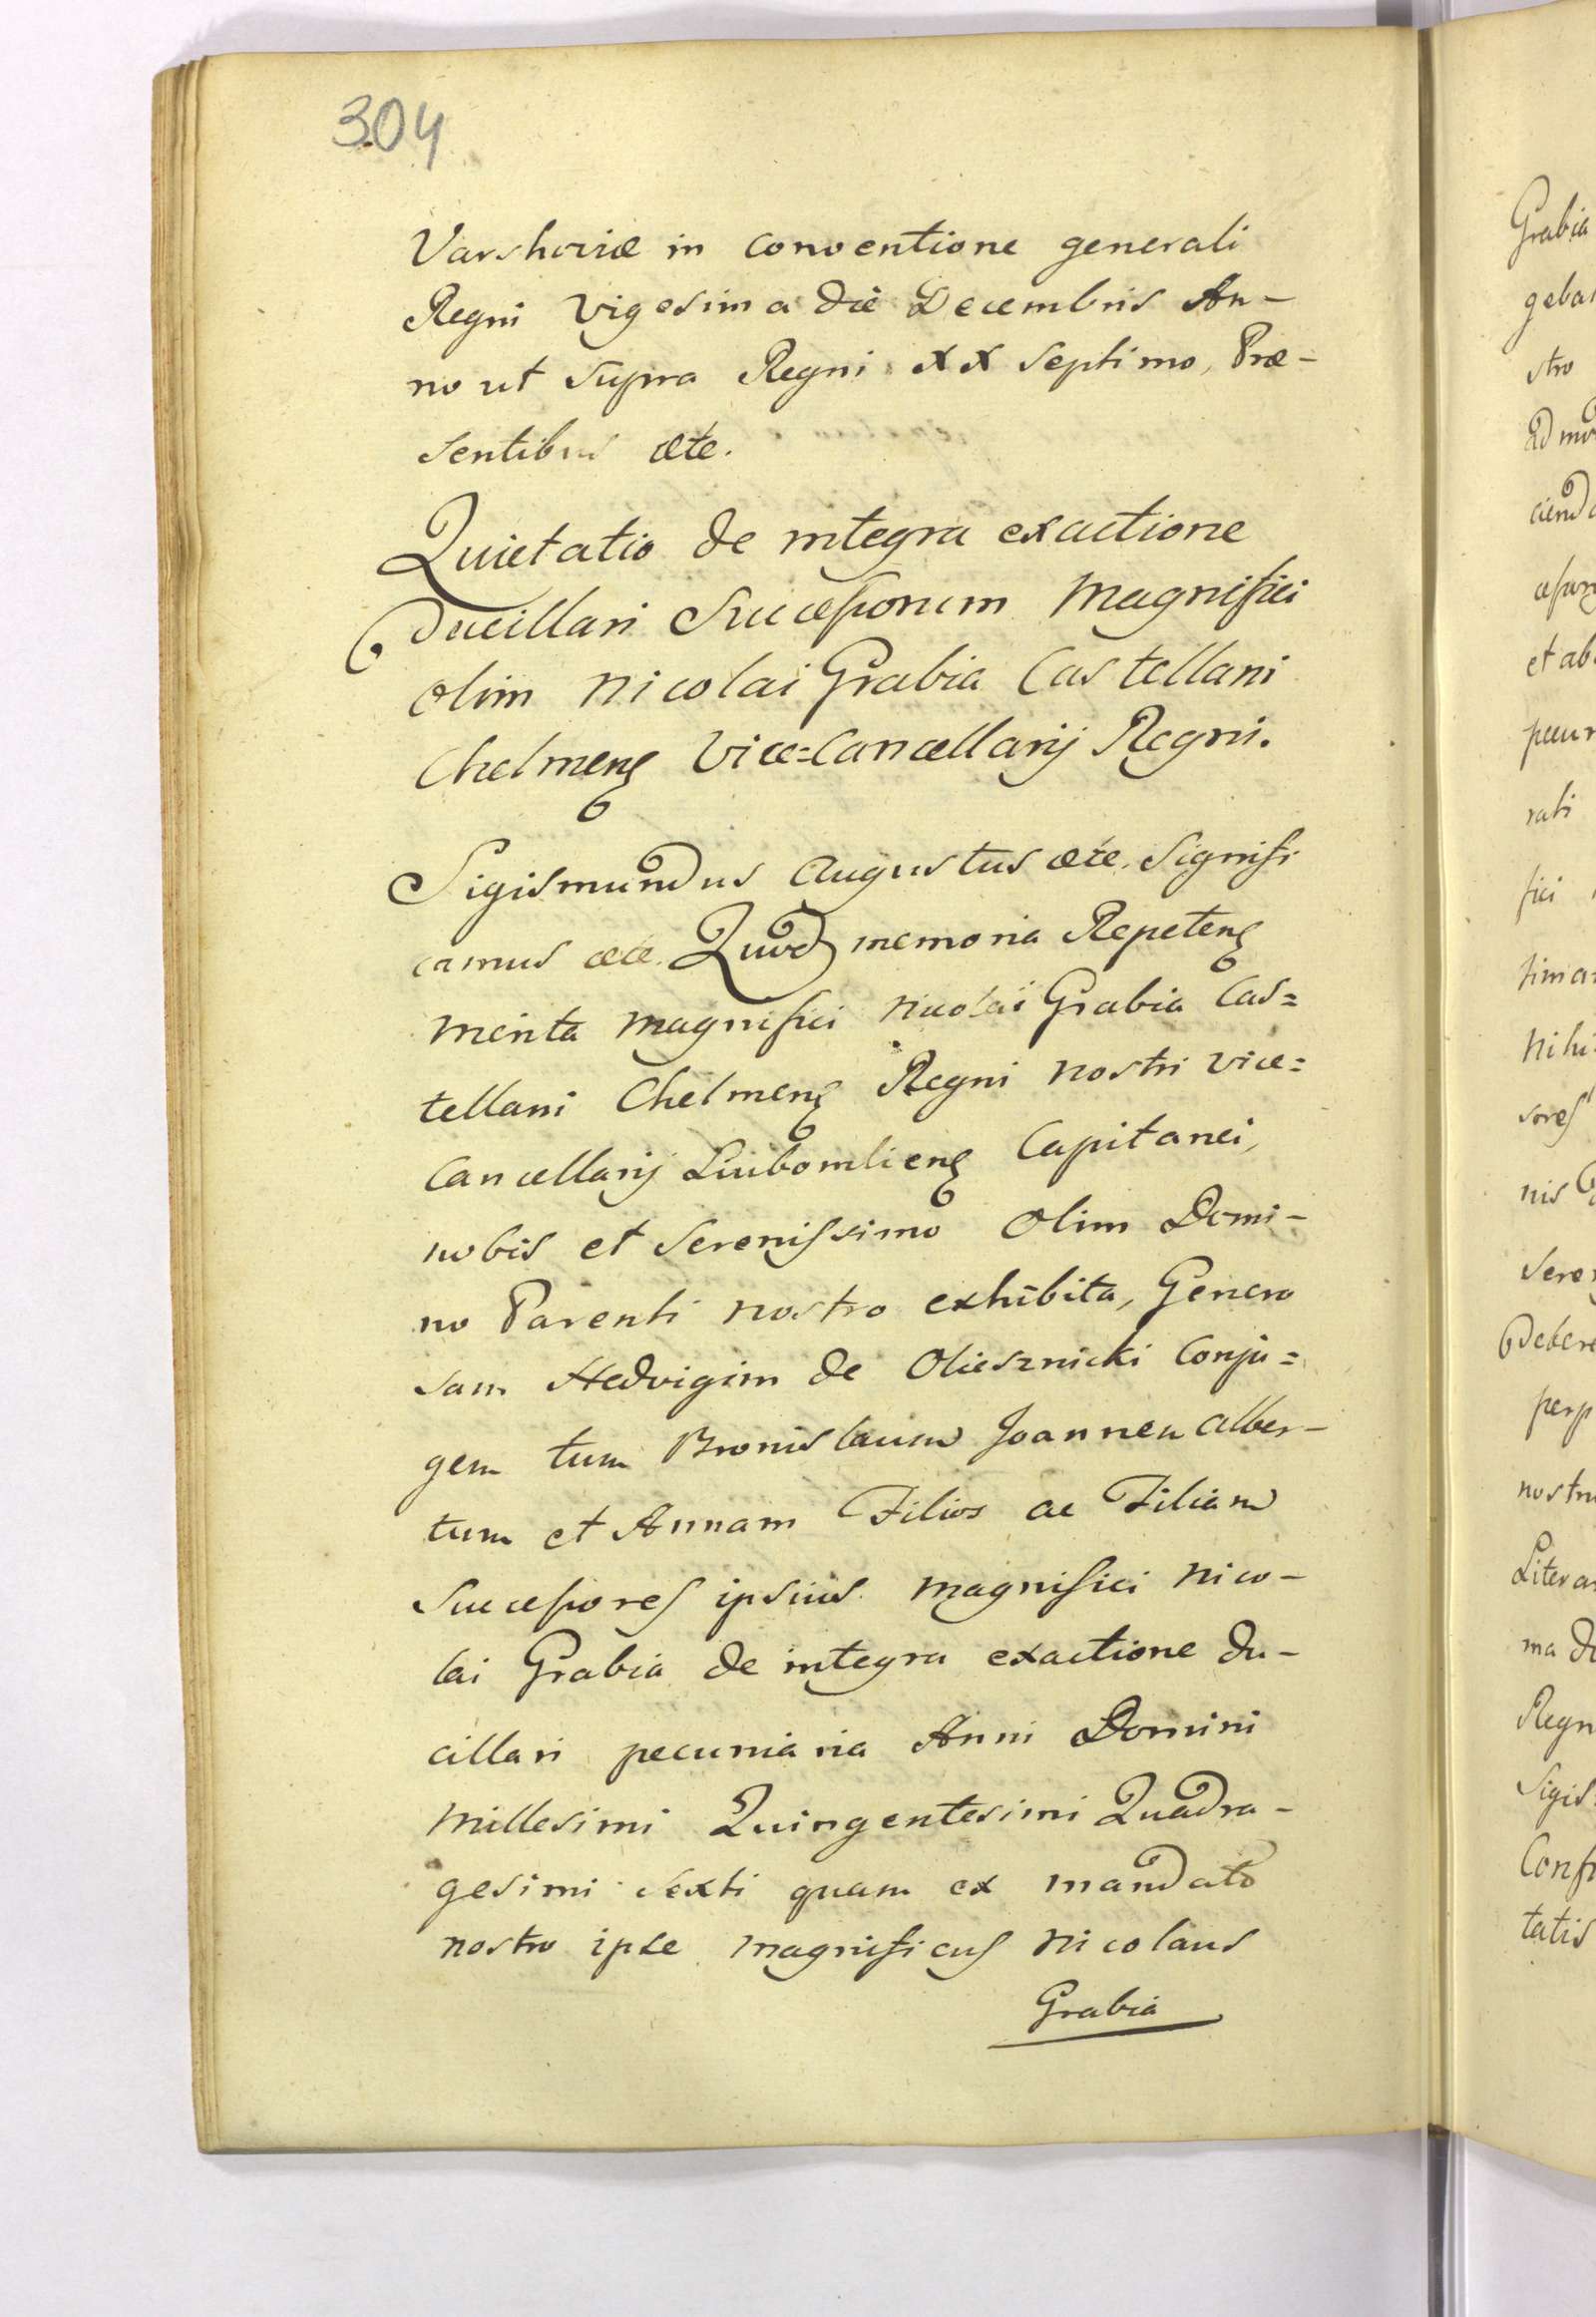 304
Varshoviæ in conventione generali
Regni vigesima die Decembris An-
no ut supra Regni XX septimo, Præ-
sentibus ætc.
Quietatio de integra exactione
Ducillari Successorum Magnifici
olim Nicolai Grabia Castellani
Chelmenȝ Vice=Cancellarij Regni.
Sigismundus Augustus ætc. Signifi
camus ætc. Quod memoria Repetenȝ
menta magnifici Nicolai Grabia Cas=
tellani Chelmenȝ Regni nostri vice=
Cancellarij Luibomlienȝ Capitanei,
nobis et Serenissimo olim Domi-
no Parenti nostro exhibita, Genero
sam Hedvigim de Oliesznicki Conju=
gem tum Bronislaum Joannem Alber-
tum et Annam Filios ac Filiam
Successores ipsius magnifici Nico-
lai Grabia de integra exactione du-
cillari pecuniaria Anni Domini
Millesimi Quingentesimi Quadra-
gesimi sexti quam ex mandato
nostro ipse magnificus Nicolaus
Grabia
Grabia
stro
et ab
rati
fici
nis
perp
nostr
ma
Regn
Sigis
Conf
tatis